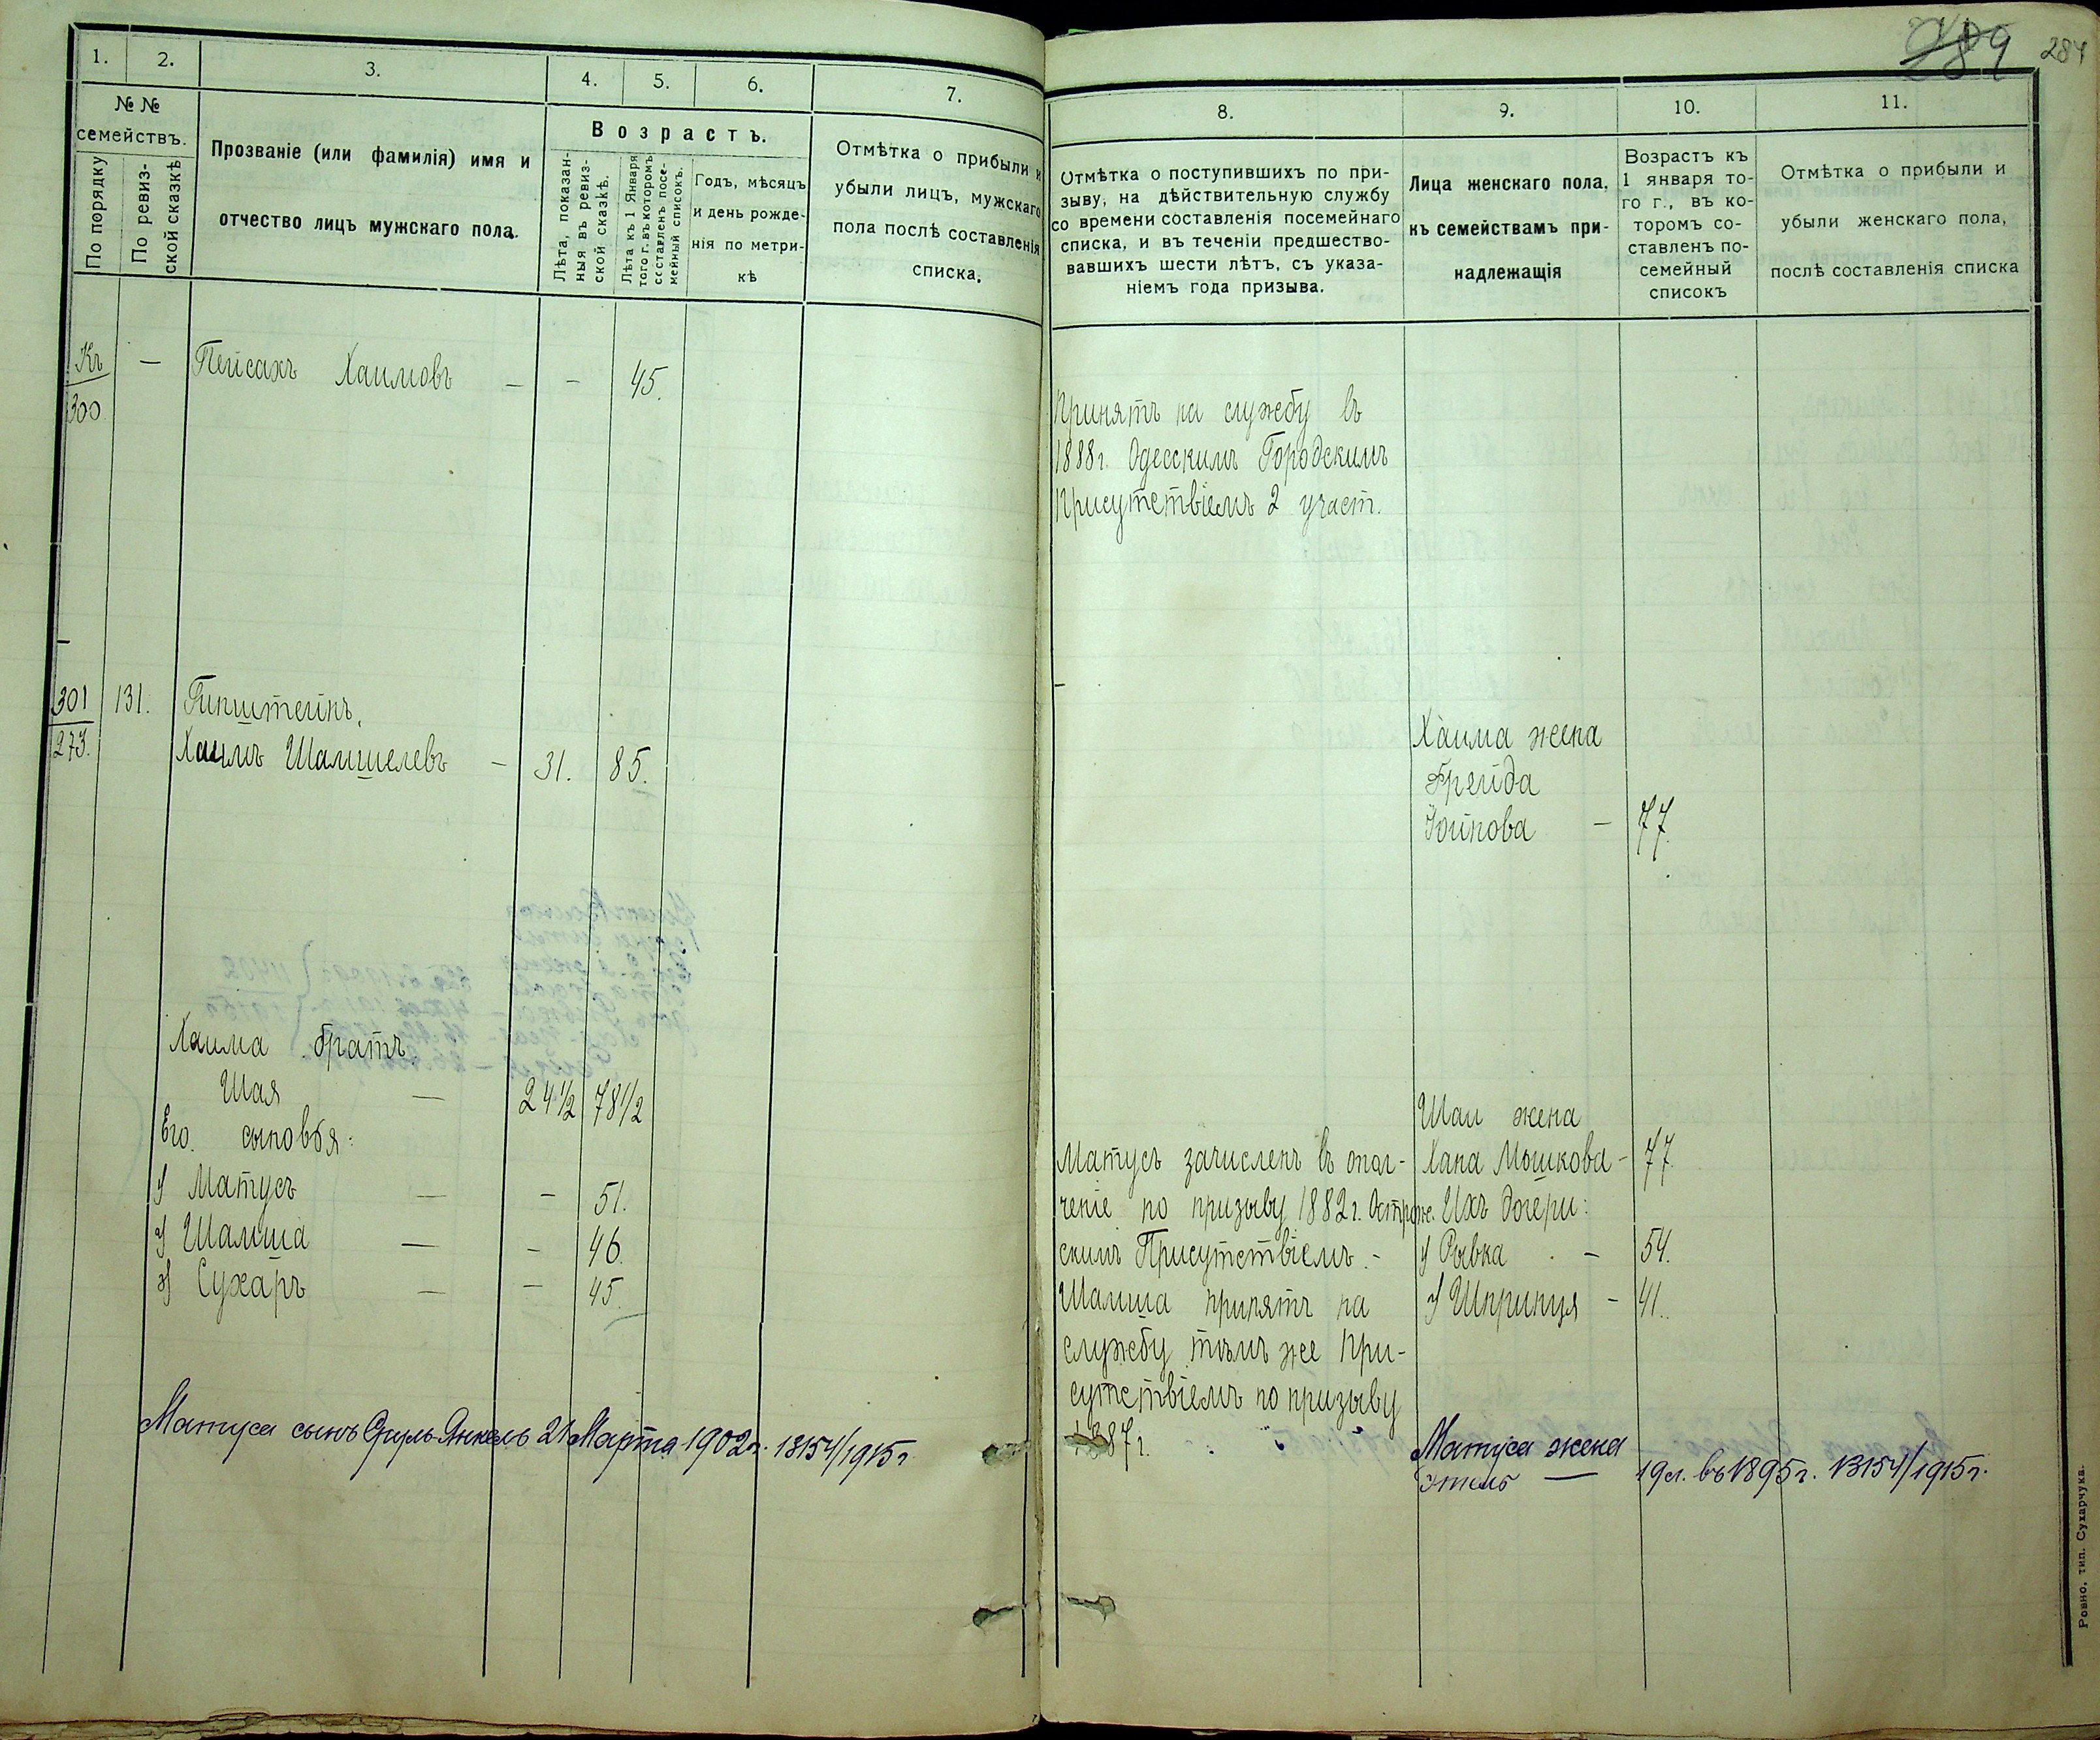 289 284
1. 2. 3. 4. 5. 6. 7.
№ №
семействъ.
По порядку
По ревиз-
ской сказкѣ
Прозваніе (или фамилія) имя и
отчество лицъ мужскаго пола.
Возрастъ.
Лѣта, показан-
ныя въ ревиз-
ской сказкѣ.
Лѣта къ 1 Января
того г. въ которомъ
составленъ посе-
мейный списокъ.
Годъ, мѣсяцъ
и день рожде-
нія по метри-
кѣ
Отмѣтка о прибыли и
убыли лицъ, мужскаго
пола послѣ составленія
списка.
Къ — Пейсахъ Хаимовъ — — 45.
300
301 131. Гипштейнъ,
273. Хаимъ Шамшелевъ — 31. 85.
Хаима братъ
Шая — 24½ 78½
Его сыновья:
1) Матусъ — — 51.
2) Шамша — — 46.
3) Сухаръ — — 45.
Матуса сынъ Сруль-Янкель 21 Марта 1902г. 13154/1915г
8. 9. 10. 11.
Отмѣтка о поступившихъ по при-
зыву, на дѣйствительную службу
со времени составленія посемейнаго
списка, и въ теченіи предшество-
вавшихъ шести лѣтъ, съ указа-
ніемъ года призыва.
Лица женскаго пола,
къ семействамъ при-
надлежащія
Возрастъ къ
1 января то-
го г., въ ко-
торомъ со-
ставленъ по-
семейный
списокъ
Отмѣтка о прибыли и
убыли женскаго пола,
послѣ составленія списка
Принятъ на службу въ
1888г. Одесскимъ Городскимъ
Присутствіемъ 2 участ.
Хаима жена
Фрейда
Іойнова — 77.
Шаи жена
Хана Мышкова — 77.
Ихъ дочери:
1) Рывка — 54.
2) Шпринця — 41.
Матусъ зачисленъ въ опол-
ченіе по призыву 1882г. Острож.
скимъ Присутствіемъ. -
Шамша принятъ на
службу тѣмъ же При-
сутствіемъ по призыву
1887г.
Матуса жена
Этель — 19л. въ 1895г. 13154/1915г.
Ровно, тип. Сухарчука.